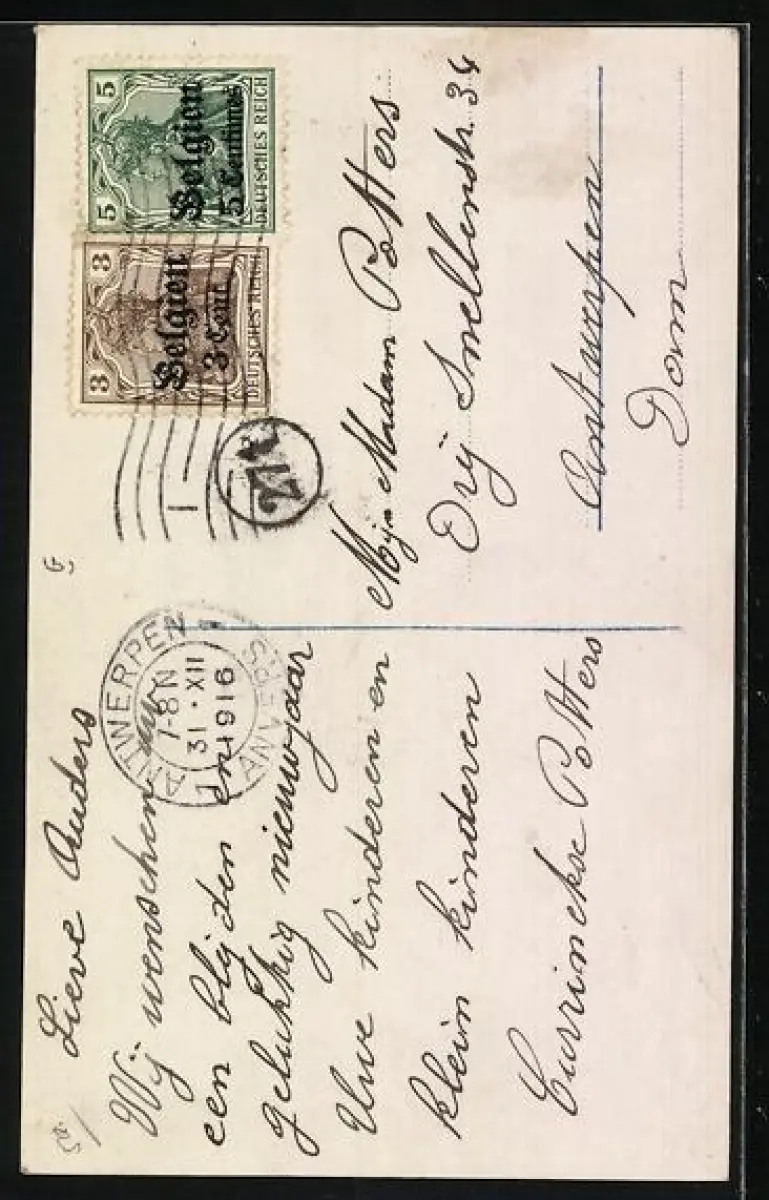 Lieve Ouders
Wij wenschen u
een blijden en
gelukkig nieuwjaar
Uwe kinderen en
klein kinderen
Potters
ANTWERPEN
7-8N
31 · XII
1916
ANVERS
1
5 5
Belgien
5 Centimes
DEUTSCHES REICH
3 3
Belgien
3 Cent.
DEUTSCHES REICH
Mijn Madam Potters
Drij Snellenstr. 34
Antwerpen
Dam